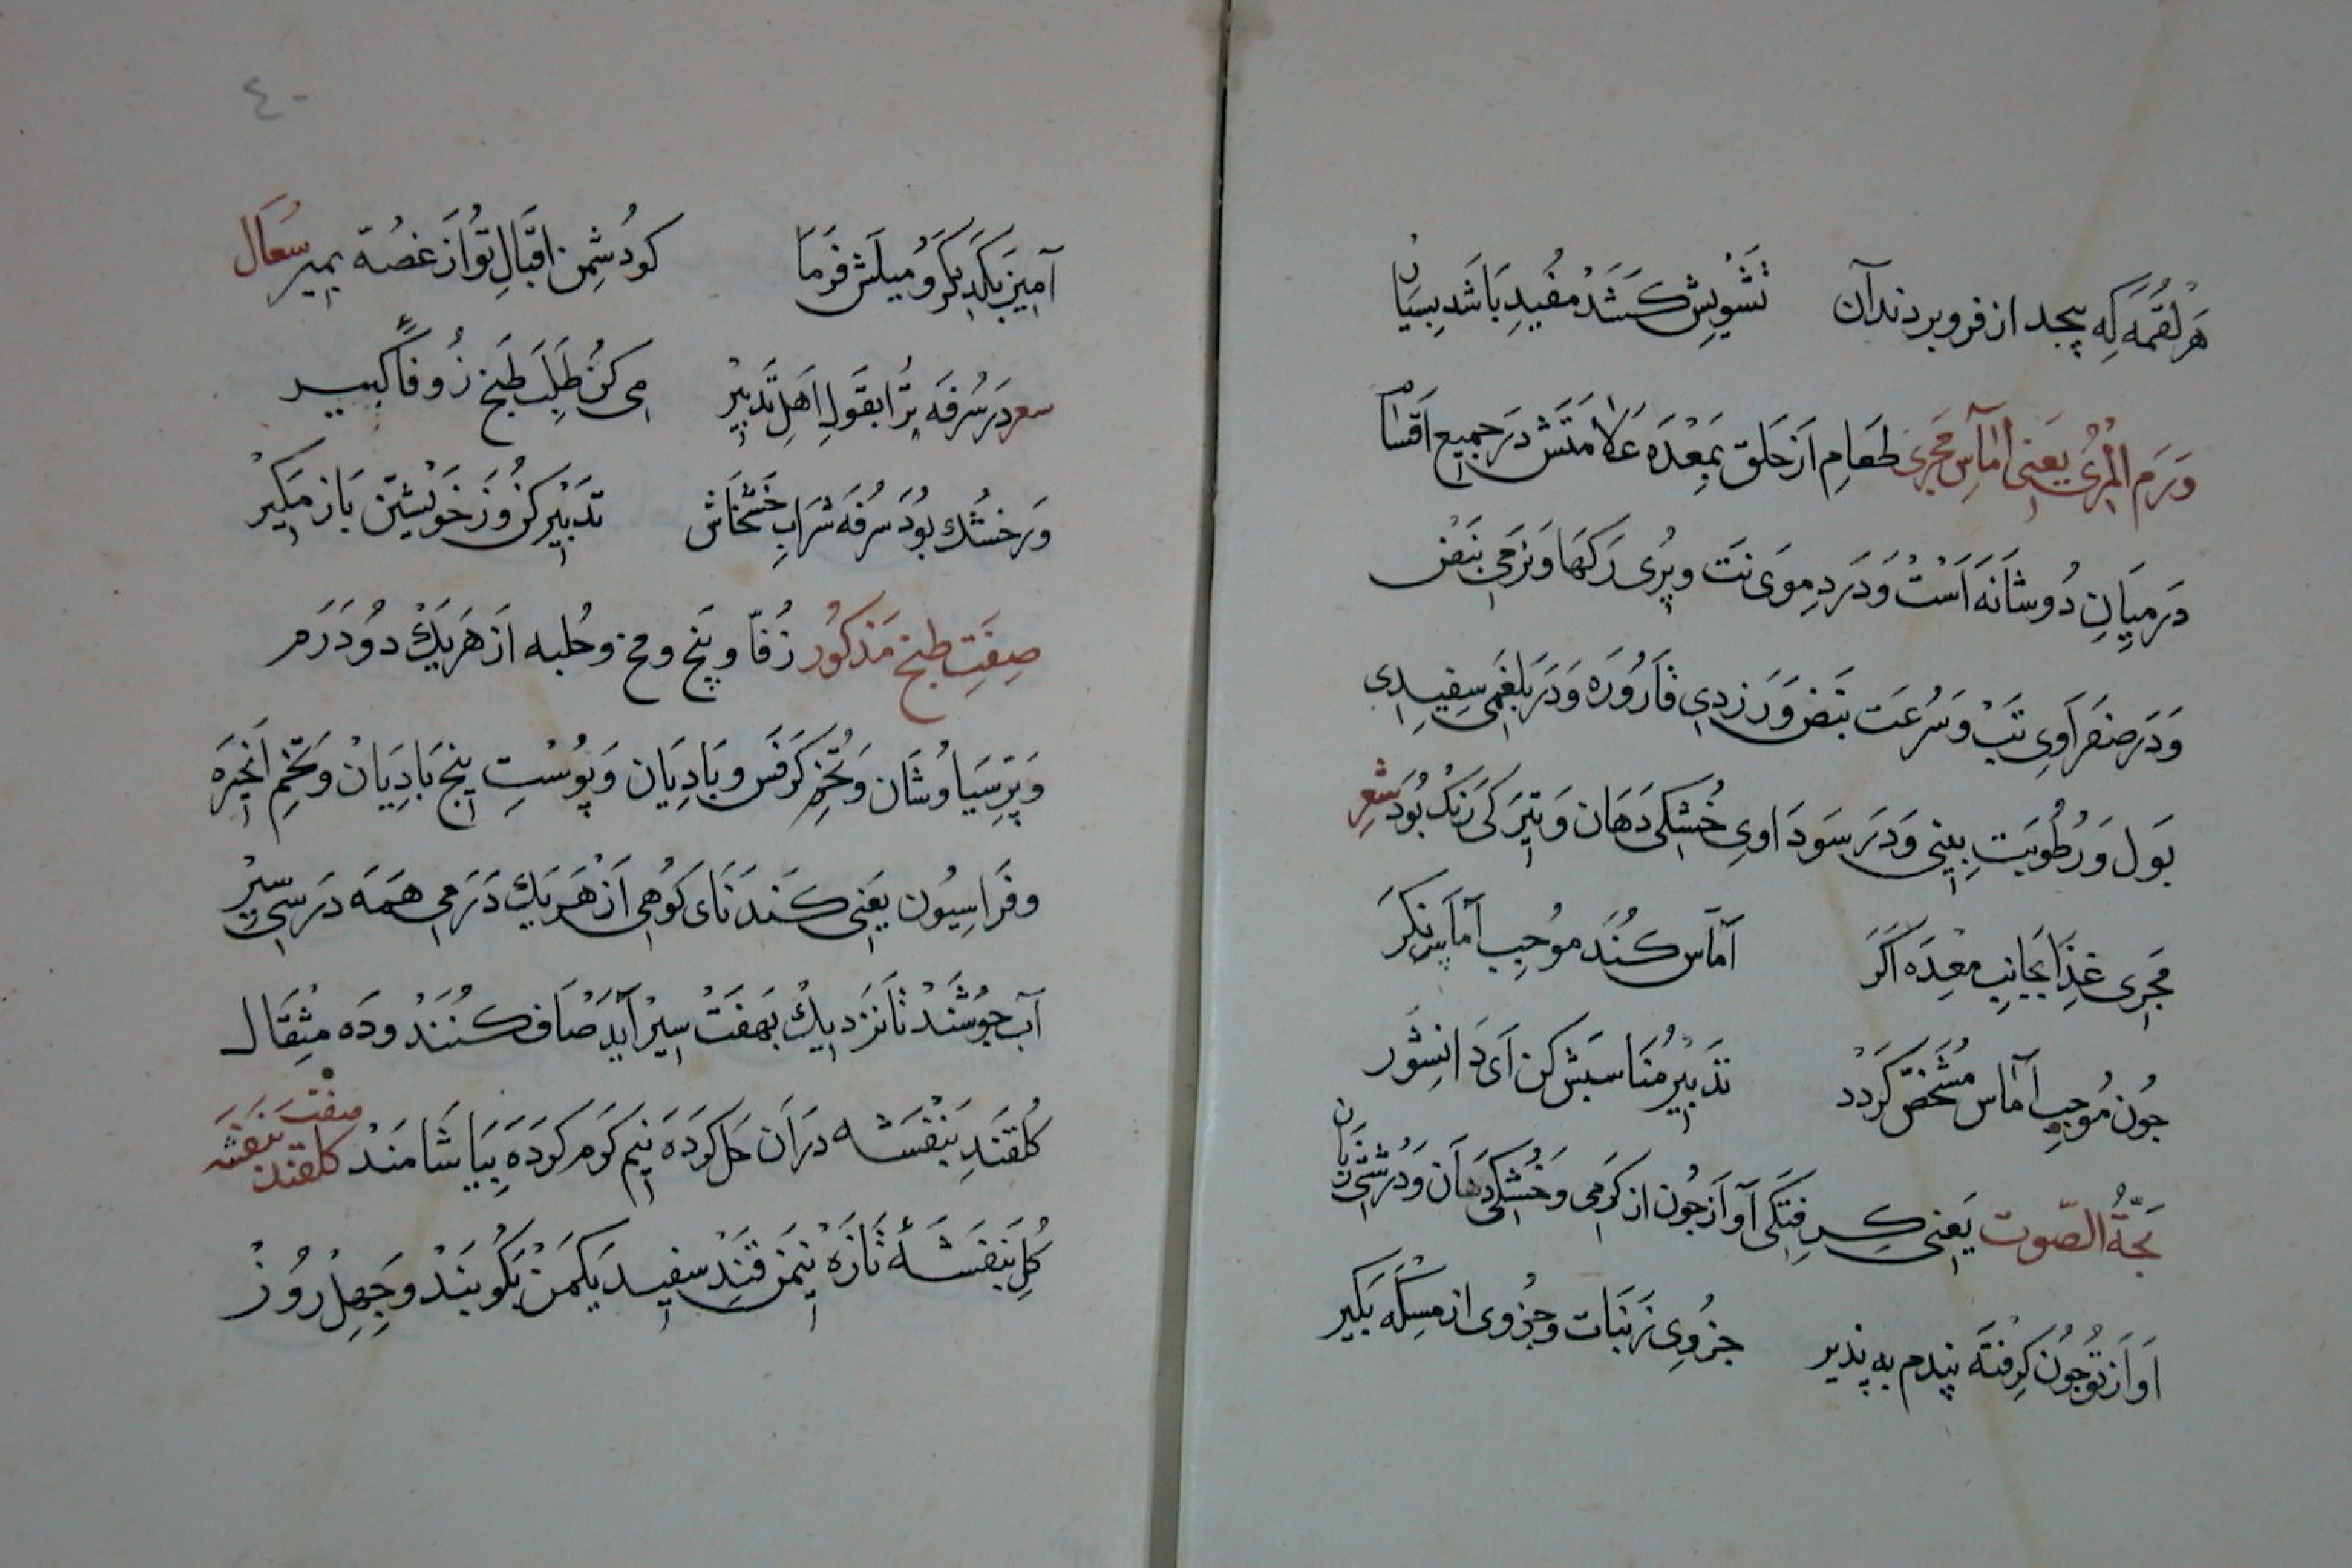 هر لقمه که پیجد از فرو بردند آن تشویش کشد مفید باشد بسیار
ورم المری یعنی اماس مجری طعام از حلق بمعده علامتش در جمیع اقسام
در میان دو شانه است و در دموی تب و پری رکها و نرمی نبض
و در صفراوی تب و سرعت نبض و زردی قاروره و در بلغمی سفیدی
بول و رطوبت بینی و در سوداوی خشکی دهان و تیرکی رنک بود شعر
مجری غذا بجانب معده اکر آماس کند موجب آماس نکر
جون موجب آماس مشخص کردد تدبیر مناسبش کن ای دانشور
بحة الصوت یعنی کرفتکی آواز جون از کرمی و خشکی دهان و درشتی زبان
اواز تو جون کرفته پندم به پذیر جزوی ز نبات و جزوی از مسکه بکیر
٤٠
آمیز بکدیکر و میلش فرما کو دشمن اقبال تو از غصه بمیر سعال
سعر در سرفه ترا بقول اهل تدبیر می کن طلب طبخ زوفا کبیر
ور خشک بود سرفه شراب خشخاش تدبیر کن و ز خویشتن باز مکیر
صفت طبخ مذکور زفا و و حلبه از هر یک دو درم
و پرسیاوشان و تخم کرفس و بادیان و پوست بیخ بادیان و تخم انجره
و فراسیون یعنی کندنای کوهی از هر یک درمی همه در سی سیر
آب جوشند تا نزدیک بهفت سیر آید صاف کنند و ده مثقال
کلقند بنفشه در آن حل کرده نیم کرم کرده بیاشامند صفت کلقند بنفشه
کل بنفشهٔ تازه نیمن قند سفید یکمن بکوبند و جهل روز